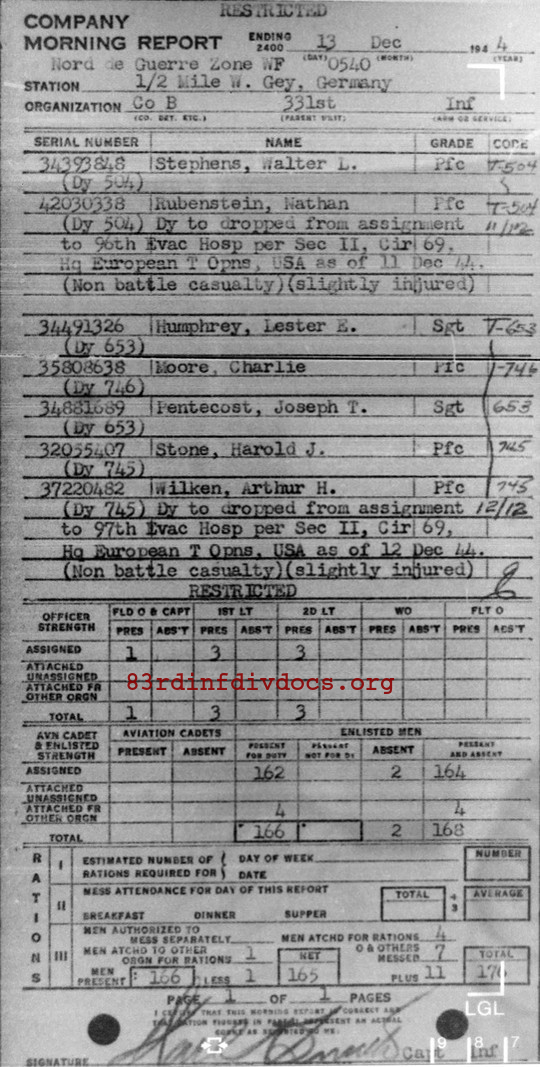 RESTRICTED
COMPANY
MORNING REPORT ENDING 2400 13 Dec 1944
(DAY) (MONTH) (YEAR)
Nord de Guerre Zone WF 0540
STATION 1/2 Mile W. Gey, Germany
ORGANIZATION Co B 331st Inf
(CO. DET. ETC.) (PARENT UNIT) (ARM OR SERVICE)
SERIAL NUMBER NAME GRADE CODE
34393848 Stephens, Walter L. Pfc T-504
(Dy 504)
42030338 Rubenstein, Nathan Pfc T-504
(Dy 504) Dy to dropped from assignment 11/12
to 96th Evac Hosp per Sec II, Cir 69,
Hq European T Opns, USA as of 11 Dec 44.
(Non battle casualty)(slightly injured)
34491326 Humphrey, Lester E. Sgt T-653
(Dy 653)
35808638 Moore, Charlie Pfc T-746
(Dy 746)
34881689 Pentecost, Joseph T. Sgt 653
(Dy 653)
32055407 Stone, Harold J. Pfc 745
(Dy 745)
37220482 Wilken, Arthur H. Pfc 745
(Dy 745) Dy to dropped from assignment 12/12
to 97th Evac Hosp per Sec II, Cir 69,
Hq European T Opns, USA as of 12 Dec 44.
(Non battle casualty)(slightly injured)
RESTRICTED
OFFICER STRENGTH FLD O & CAPT 1ST LT 2D LT WO FLT O
PRES ABS'T PRES ABS'T PRES ABS'T PRES ABS'T PRES ABS'T
ASSIGNED 1 3 3
ATTACHED UNASSIGNED
ATTACHED FR OTHER ORGN
83rdinfdivdocs.org
TOTAL 1 3 3
AVN CADET & ENLISTED STRENGTH AVIATION CADETS ENLISTED MEN
PRESENT ABSENT PRESENT FOR DUTY PRESENT NOT FOR DY ABSENT PRESENT AND ABSENT
ASSIGNED 162 2 164
ATTACHED UNASSIGNED
ATTACHED FR OTHER ORGN 4 4
TOTAL 166 2 168
RATIONS
I ESTIMATED NUMBER OF RATIONS REQUIRED FOR DAY OF WEEK DATE NUMBER
II MESS ATTENDANCE FOR DAY OF THIS REPORT TOTAL ÷ 3 AVERAGE
BREAKFAST DINNER SUPPER
III MEN AUTHORIZED TO MESS SEPARATELY MEN ATCHD FOR RATIONS 4
MEN ATCHD TO OTHER ORGN FOR RATIONS 1 NET O & OTHERS MESSED 7 TOTAL
MEN PRESENT 166 LESS 1 165 PLUS 11 176
PAGE 1 OF 1 PAGES
I CERTIFY THAT THIS MORNING REPORT IS CORRECT AND
LGL
SIGNATURE Capt Inf
9 8 7